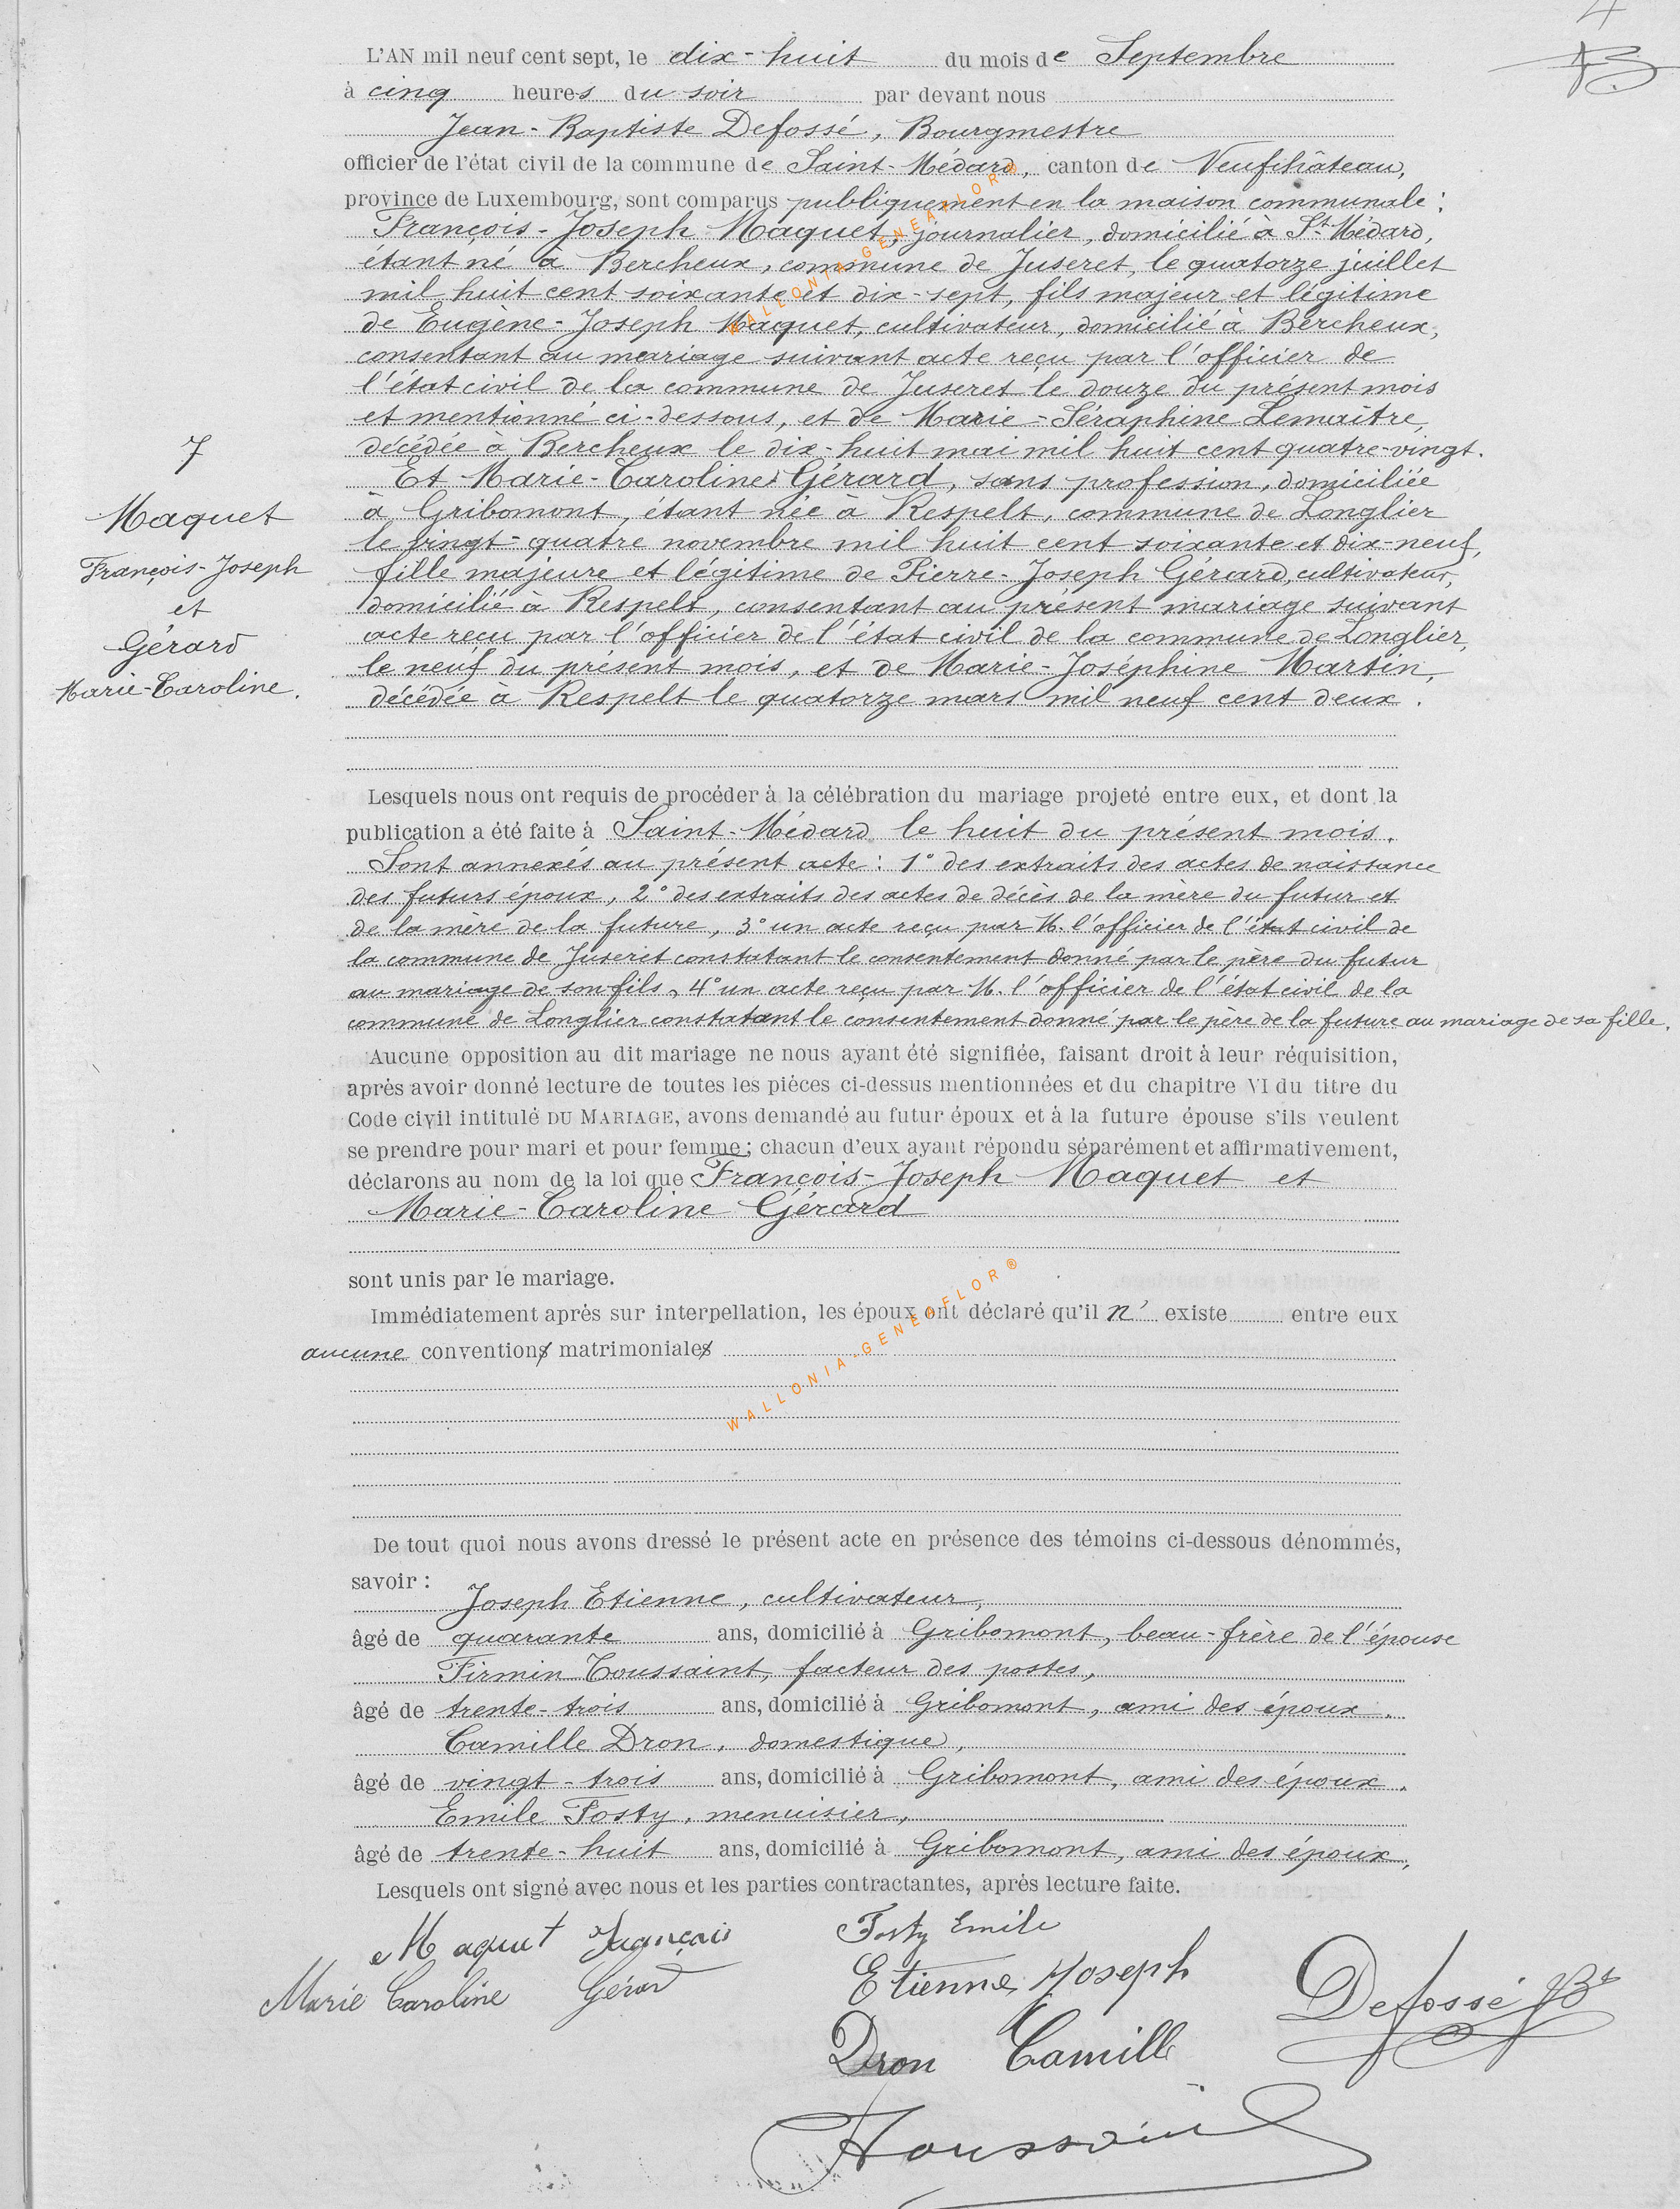 4
L'AN mil neuf cent sept, le dix-huit du mois de Septembre
à cinq heures du soir par devant nous
Jean-Baptiste Defossé, Bourgmestre
officier de l'état civil de la commune de Saint-Médard, canton de Neufchâteau,
province de Luxembourg, sont comparus publiquement en la maison communale :
François-Joseph Maquet, journalier, domicilié à St-Médard,
étant né à Bercheux, commune de Juseret, le quatorze juillet
mil huit cent soixante et dix-sept, fils majeur et légitime
de Eugène-Joseph Maquet, cultivateur, domicilié à Bercheux,
consentant au mariage suivant acte reçu par l'officier de
l'état civil de la commune de Juseret le douze du présent mois
et mentionné ci-dessous, et de Marie-Séraphine Lemaître,
décédée à Bercheux le dix-huit mai mil huit cent quatre-vingt.
Et Marie-Caroline Gérard, sans profession, domiciliée
à Gribomont, étant née à Respelt, commune de Longlier
le vingt-quatre novembre mil huit cent soixante et dix-neuf,
fille majeure et légitime de Pierre-Joseph Gérard, cultivateur,
domicilié à Respelt, consentant au présent mariage suivant
acte reçu par l'officier de l'état civil de la commune de Longlier,
le neuf du présent mois, et de Marie-Joséphine Martin,
décédée à Respelt le quatorze mars mil neuf cent deux.
7
Maquet
François-Joseph
et
Gérard
Marie-Caroline.
Lesquels nous ont requis de procéder à la célébration du mariage projeté entre eux, et dont la
publication a été faite à Saint-Médard le huit du présent mois.
Sont annexés au présent acte : 1° des extraits des actes de naissance
des futurs époux, 2° des extraits des actes de décès de la mère du futur et
de la mère de la future, 3° un acte reçu par M. l'officier de l'état civil de
la commune de Juseret constatant le consentement donné par le père du futur
au mariage de son fils, 4° un acte reçu par M. l'officier de l'état civil de la
commune de Longlier constatant le consentement donné par le père de la future au mariage de sa fille.
Aucune opposition au dit mariage ne nous ayant été signifiée, faisant droit à leur réquisition,
après avoir donné lecture de toutes les pièces ci-dessus mentionnées et du chapitre VI du titre du
Code civil intitulé DU MARIAGE, avons demandé au futur époux et à la future épouse s'ils veulent
se prendre pour mari et pour femme ; chacun d'eux ayant répondu séparément et affirmativement,
déclarons au nom de la loi que François-Joseph Maquet et
Marie-Caroline Gérard
sont unis par le mariage.
Immédiatement après sur interpellation, les époux ont déclaré qu'il n' existe entre eux
aucune conventions matrimoniales
De tout quoi nous avons dressé le présent acte en présence des témoins ci-dessous dénommés,
savoir :
Joseph Etienne, cultivateur,
âgé de quarante ans, domicilié à Gribomont, beau-frère de l'épouse
Firmin Toussaint, facteur des postes,
âgé de trente-trois ans, domicilié à Gribomont, ami des époux.
Camille Dron, domestique,
âgé de vingt-trois ans, domicilié à Gribomont, ami des époux.
Emile Fosty, menuisier,
âgé de trente-huit ans, domicilié à Gribomont, ami des époux,
Lesquels ont signé avec nous et les parties contractantes, après lecture faite.
Maquet François
Marie Caroline Gérard
Fosty Emile
Etienne Joseph
Defossé JBt
Dron Camille
Toussaint
WALLONIA-GENEAFLOR®
WALLONIA-GENEAFLOR®